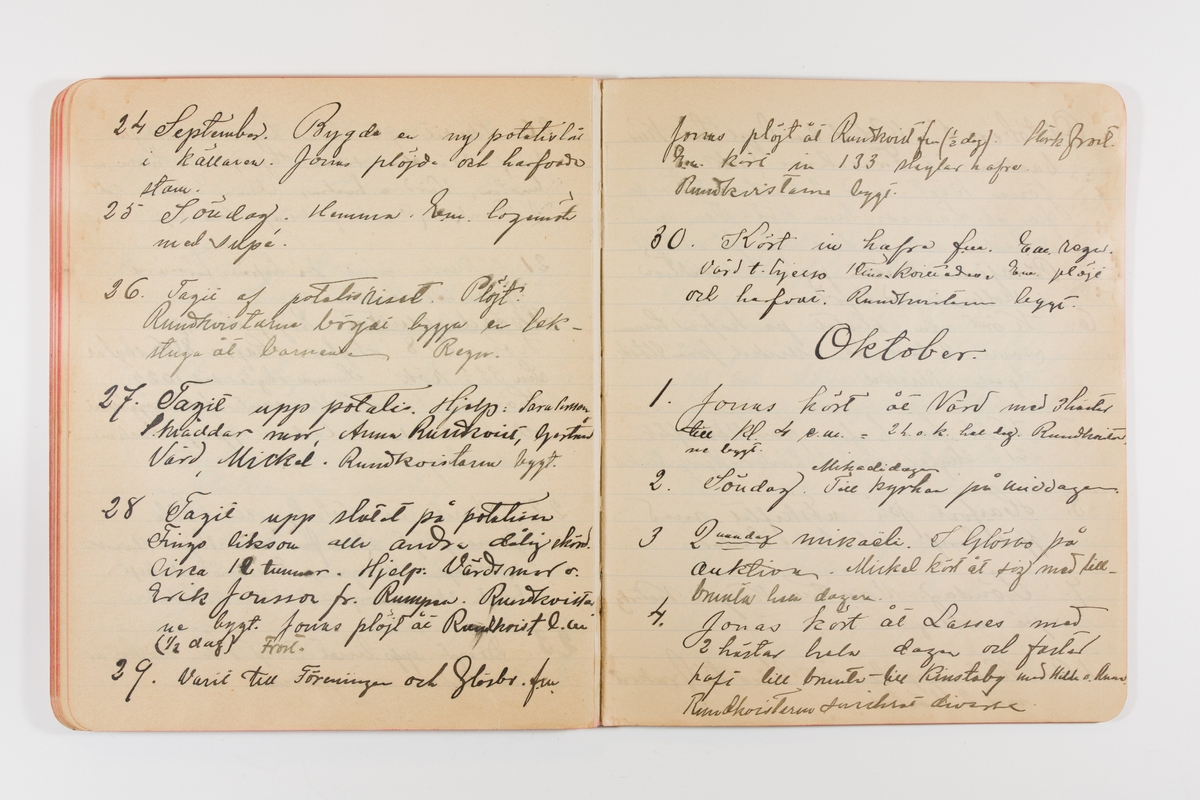 24 September. Bygde en ny potatislår
i källaren. Jonas plöjde och harfvade
25 Söndag. Hemma. Em.
med supé.
26. Tagit af potatisriset. Plöjt.
Rundkvistarna börjat bygga en lek-
stuga åt barnen. Regn.
27. Tagit upp potatis. Hjelp: Sara
mor, Anna Rundkvist,
Vård, Mickel. Rundkvistarna bygt.
28 Tagit upp slutet på potatisen
Fingo liksom alla andra dålig skörd.
Circa 12 tunnor. Hjelp: Vårdsmor o.
Erik Jonsson fr. Rumpan. Rundkvistar
na bygt. Jonas plöjt åt Rundkvist
(1/2 dag) Frost.
29. Varit till Föreningen och Glösbo. fm
Jonas plöjt åt Rundkvist fm (½ dag). Stark frost.
Em. kört in 133 skylar hafre.
Rundkvistarna bygt.
30. Kört in hafre fm. Em. regn.
Em. plöjt
och harfvat. Rundkvistarna bygt.
Oktober.
1. Jonas kört åt Vård med 2 hästar
till kl. 4 e.m. = hel dag. Rundkvistar
na bygt.
Mikaelidagen
2. Söndag. Till kyrkan på middagen.
3 2 dag mikaeli. I Glösbo på
auktion. Mickel kört åt sig med till-
hela dagen.
4. Jonas kört åt Lasses med
2 hästar hela dagen och
till till med Hilda o. Anna
Rundkvistarna diverse.